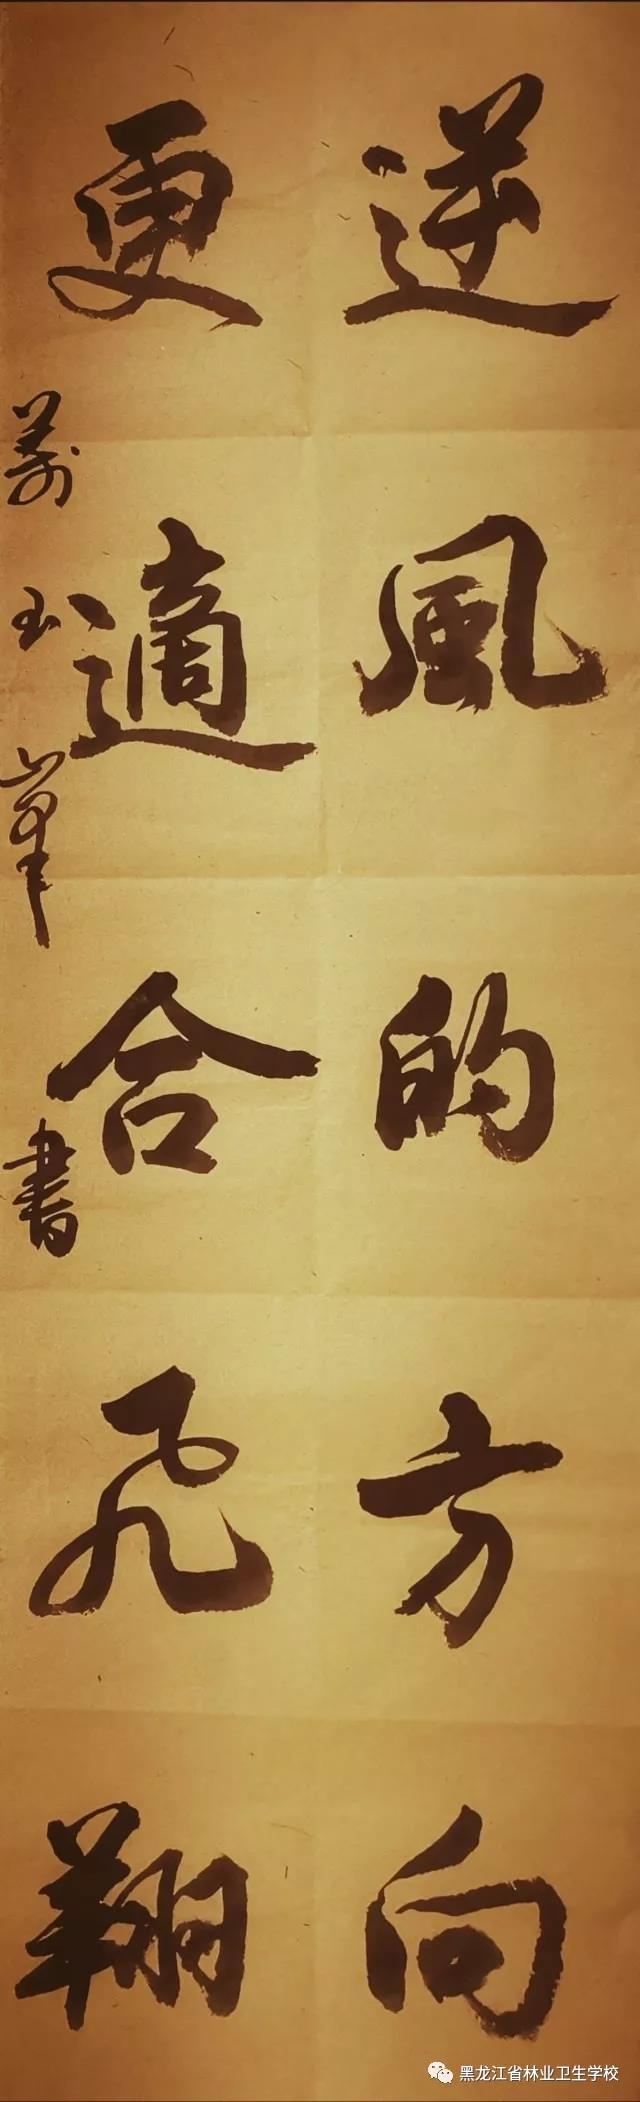 逆風的方向
更適合飛翔
玉峯書
黑龙江省林业卫生学校